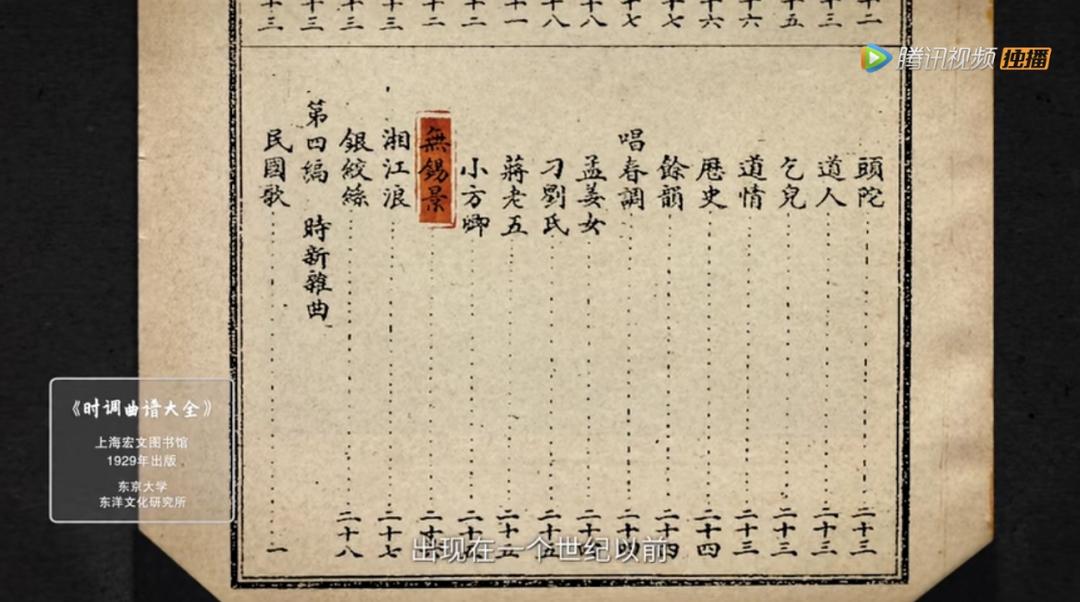 腾讯视频 独播
十二
十三
十五
十六
十六
十七
十七
十八
十八
十一
十二
十二
十三
十三
十三
十三
頭陀 二十三
道人 二十三
乞兒 二十三
道情 二十三
歷史 二十四
餘韻 二十四
唱春調 二十四
孟姜女 二十四
刁劉氏 二十五
蔣老五 二十五
小方卿 二十
無錫景 二十
湘江浪 二十七
銀絞絲 二十八
第四編 時新雜曲
民國歌 一
《时调曲谱大全》
上海宏文图书馆
1929年出版
东京大学
东洋文化研究所
出现在一个世纪以前